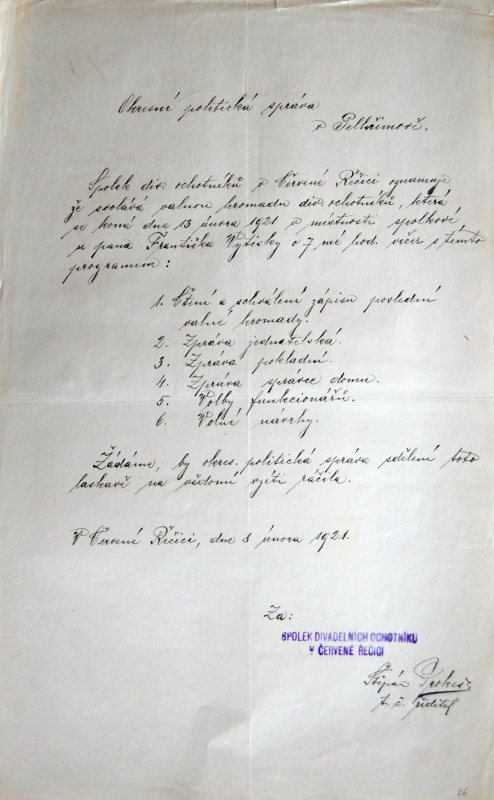 Okresní politická správa
v Pelhřimově.
Spolek div. ochotníků v Červené Řečici oznamuje
že svolává valnou hromadu div. ochotníků, která
se koná dne 13 února 1921 v místnosti spolkové
u pana Františka Vytisky o 7 mé hod. večer s tímto
programem:
1. Čtení a schválení zápisu poslední
valné hromady.
2. Zpráva jednatelská.
3. Zpráva pokladní.
4. Zpráva správce domu.
5. Volby funkcionářů.
6. Volné návrhy.
Žádáme, by okres. politická správa sdělení toto
laskavě na vědomí vzíti ráčila.
V Červené Řečici, dne 8 února 1921.
Za:
SPOLEK DIVADELNÍCH OCHOTNÍKU
V ČERVENÉ ŘEČICI
Štěpán
t. č. ředitel
26